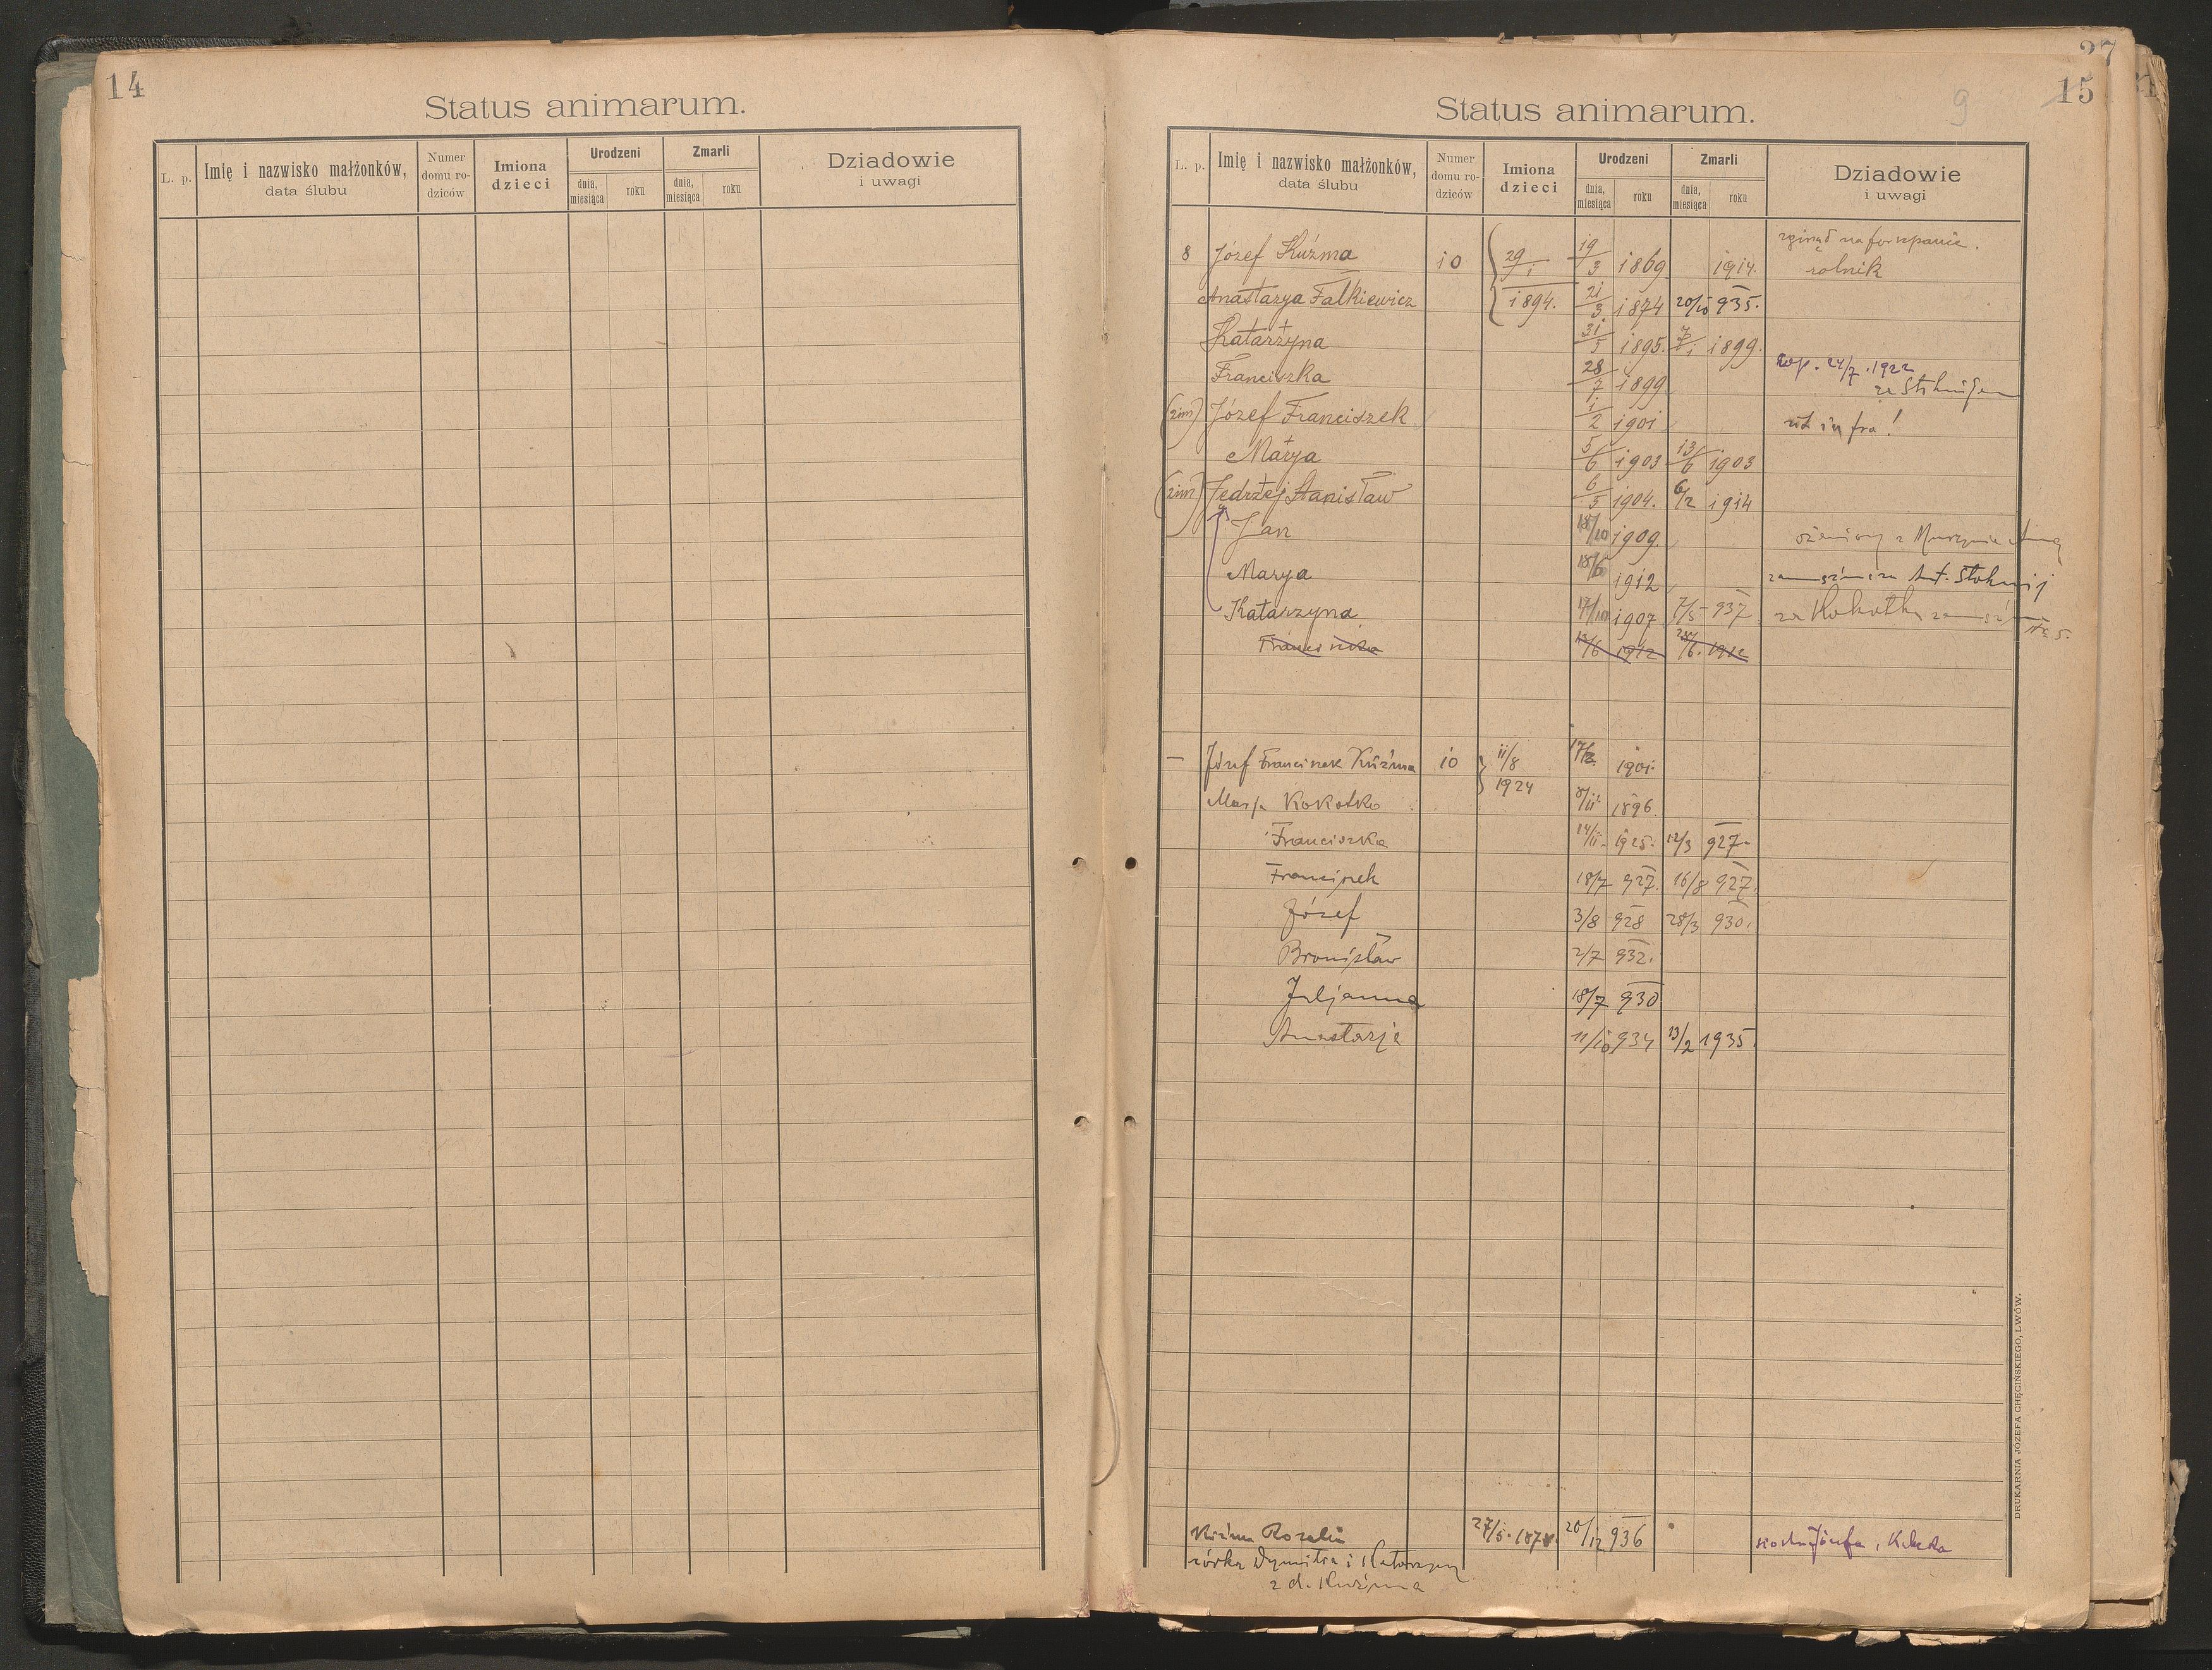 14
Status animarum.
L. p.
Imię i nazwisko małżonków,
data ślubu
Numer
domu ro-
dziców
Imiona
dzieci
Urodzeni
dnia,
miesiąca
roku
Zmarli
dnia,
miesiąca
roku
Dziadowie
i uwagi
27
15
9
Status animarum.
L. p.
Imię i nazwisko małżonków,
data ślubu
Numer
domu ro-
dziców
Imiona
dzieci
Urodzeni
dnia,
miesiąca
roku
Zmarli
dnia,
miesiąca
roku
Dziadowie
i uwagi
8 Józef Kuźma 10 29/1 19/3 1869 1914. zginął na forszpanie.
rolnik
Anastazya Falkiewicz 1894. 21/3 1874 20/10 935.
Katarzyna 31/5 1895. 7/1 1899.
Franciszka 28/7 1899 cop. 24/7 .1922
za
(zim) Józef Franciszek 1/2 1901 ut infra!
Marya 5/6 1903 13/6 1903
(zim) Jędrzej Stanisław 6/5 1904. 6/2 1914
Jan 18/10 1909. ożeniony z
Marya 18/6 1912 Ant.
Katarzyna 1907 7/5 937 za Kokotką
Franciszka 13/6 1912 /6. 1912
— Józef Franciszek Kuźma 10 11/8 1901.
1924
Marja Kokotko 8/11 1896.
Franciszka 14/11. 1925. 12/3 927.
Franciszek 18/7 927. 16/8 927.
Józef 3/8 928 28/3 930.
Bronisław 2/7 932.
Juljanna 18/7 930
Anastazja 11/10 934 13/2 1935.
Kuźma Rozalia 27/5. 187 20/12 936 Józefa,
córka Dymitra i Katarzyny
z d. Kuźma
DRUKARNIA JÓZEFA CHĘCIŃSKIEGO, LWÓW.